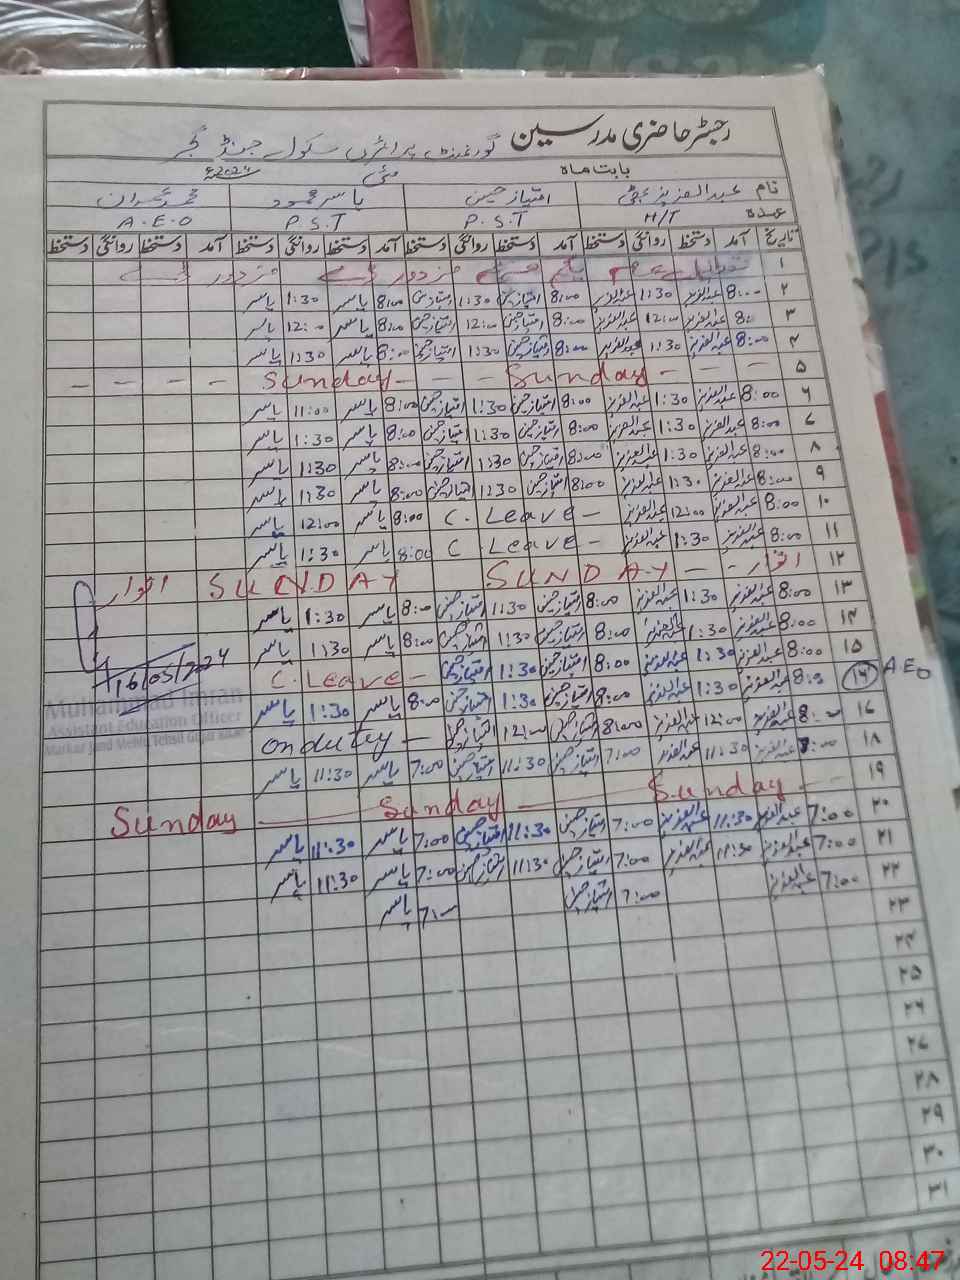 رجسٹر حاضری مدرسین گورنمنٹ پرائمری سکول جنڈ گجر
بابت ماہ مئی 2024ء
نام عبدالعزیز بھٹی امتیاز حسین یاسر محمود محمد عمران
عہدہ H/T P.S.T P.S.T A.E.O
تاریخ آمد دستخط روانگی دستخط آمد دستخط روانگی دستخط آمد دستخط روانگی دستخط آمد دستخط روانگی دستخط
۱ یکم مئی مزدور ڈے مزدور ڈے
۲ 8:00 عبدالعزیز 1:30 عبدالعزیز 8:00 امتیاز حسین 1:30 امتیاز حسین 8:00 یاسر 1:30 یاسر
۳ 8:00 عبدالعزیز 12:00 عبدالعزیز 8:00 امتیاز حسین 12:00 امتیاز حسین 8:00 یاسر 12:00 یاسر
۴ 8:00 عبدالعزیز 1:30 عبدالعزیز 8:00 امتیاز حسین 1:30 امتیاز حسین 8:00 یاسر 1:30 یاسر
۵ - - - Sunday - - - Sunday - - - -
۶ 8:00 عبدالعزیز 1:30 عبدالعزیز 8:00 امتیاز حسین 1:30 امتیاز حسین 8:00 یاسر 11:00 یاسر
۷ 8:00 عبدالعزیز 1:30 عبدالعزیز 8:00 امتیاز حسین 1:30 امتیاز حسین 8:00 یاسر 1:30 یاسر
۸ 8:00 عبدالعزیز 1:30 عبدالعزیز 8:00 امتیاز حسین 1:30 امتیاز حسین 8:00 یاسر 1:30 یاسر
۹ 8:00 عبدالعزیز 1:30 عبدالعزیز 8:00 امتیاز حسین 1:30 امتیاز حسین 8:00 یاسر 1:30 یاسر
۱۰ 8:00 عبدالعزیز 12:00 عبدالعزیز C. Leave - 8:00 یاسر 12:00 یاسر
۱۱ 8:00 عبدالعزیز 1:30 عبدالعزیز C Leave - 8:00 یاسر 1:30 یاسر
۱۲ اتوار - - SUNDAY SUNDAY اتوار
۱۳ 8:00 عبدالعزیز 1:30 عبدالعزیز 8:00 امتیاز حسین 1:30 امتیاز حسین 8:00 یاسر 1:30 یاسر
۱۴ 8:00 عبدالعزیز 1:30 عبدالعزیز 8:00 امتیاز حسین 1:30 امتیاز حسین 8:00 یاسر 1:30 یاسر
۱۵ 8:00 عبدالعزیز 1:30 عبدالعزیز 8:00 امتیاز حسین 1:30 امتیاز حسین C. Leave -
A.E.O ۱۶ 8:00 عبدالعزیز 1:30 عبدالعزیز 8:00 امتیاز حسین 1:30 امتیاز حسین 8:00 یاسر 1:30 یاسر
16/05/2024
Muhammad Imran
Assistant Education Officer
Markaz Jand Mehlu Tehsil Gujar Khan
۱۶ 8:00 عبدالعزیز 12:00 عبدالعزیز 8:00 امتیاز حسین 12:00 امتیاز حسین on dutey -
۱۸ 7:00 عبدالعزیز 11:30 عبدالعزیز 7:00 امتیاز حسین 11:30 امتیاز حسین 7:00 یاسر 11:30 یاسر
۱۹ Sunday Sunday Sunday
۲۰ 7:00 عبدالعزیز 11:30 عبدالعزیز 7:00 امتیاز حسین 11:30 امتیاز حسین 7:00 یاسر 11:30 یاسر
۲۱ 7:00 عبدالعزیز 11:30 عبدالعزیز 7:00 امتیاز حسین 11:30 امتیاز حسین 7:00 یاسر 11:30 یاسر
۲۲ 7:00 عبدالعزیز 7:00 امتیاز حسین 7:00 یاسر
۲۳
۲۴
۲۵
۲۶
۲۷
۲۸
۲۹
۳۰
۳۱
22-05-24 08:47